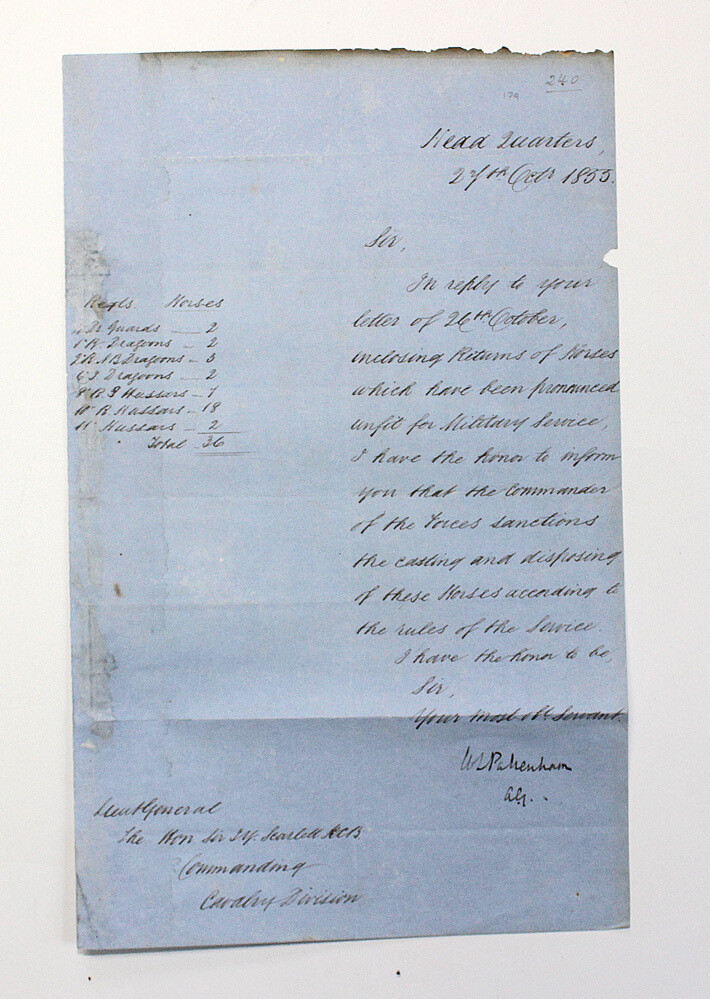 240
179
Head Quarters,
27th Octr 1855.
Sir,
In reply to your
letter of 26th October,
inclosing Returns of Horses
which have been pronounced
unfit for Military Service,
I have the honor to inform
you that the Commander
of the Forces sanctions
the casting and disposing
of these Horses according to
the rules of the Service.
I have the honor to be,
Sir,
Your most obt Servant.
W L Pakenham
AG.
Regts. Horses
Dr Guards — 2
1st R. Dragoons — 2
2 R. N B Dragoons — 3
6 I Dragoons — 2
8 R. I Hussars — 7
10 R Hussars — 18
11 Hussars — 2
Total 36
Lieut General
The Hon Sir J Y. Scarlett KCB
Commanding
Cavalry Division